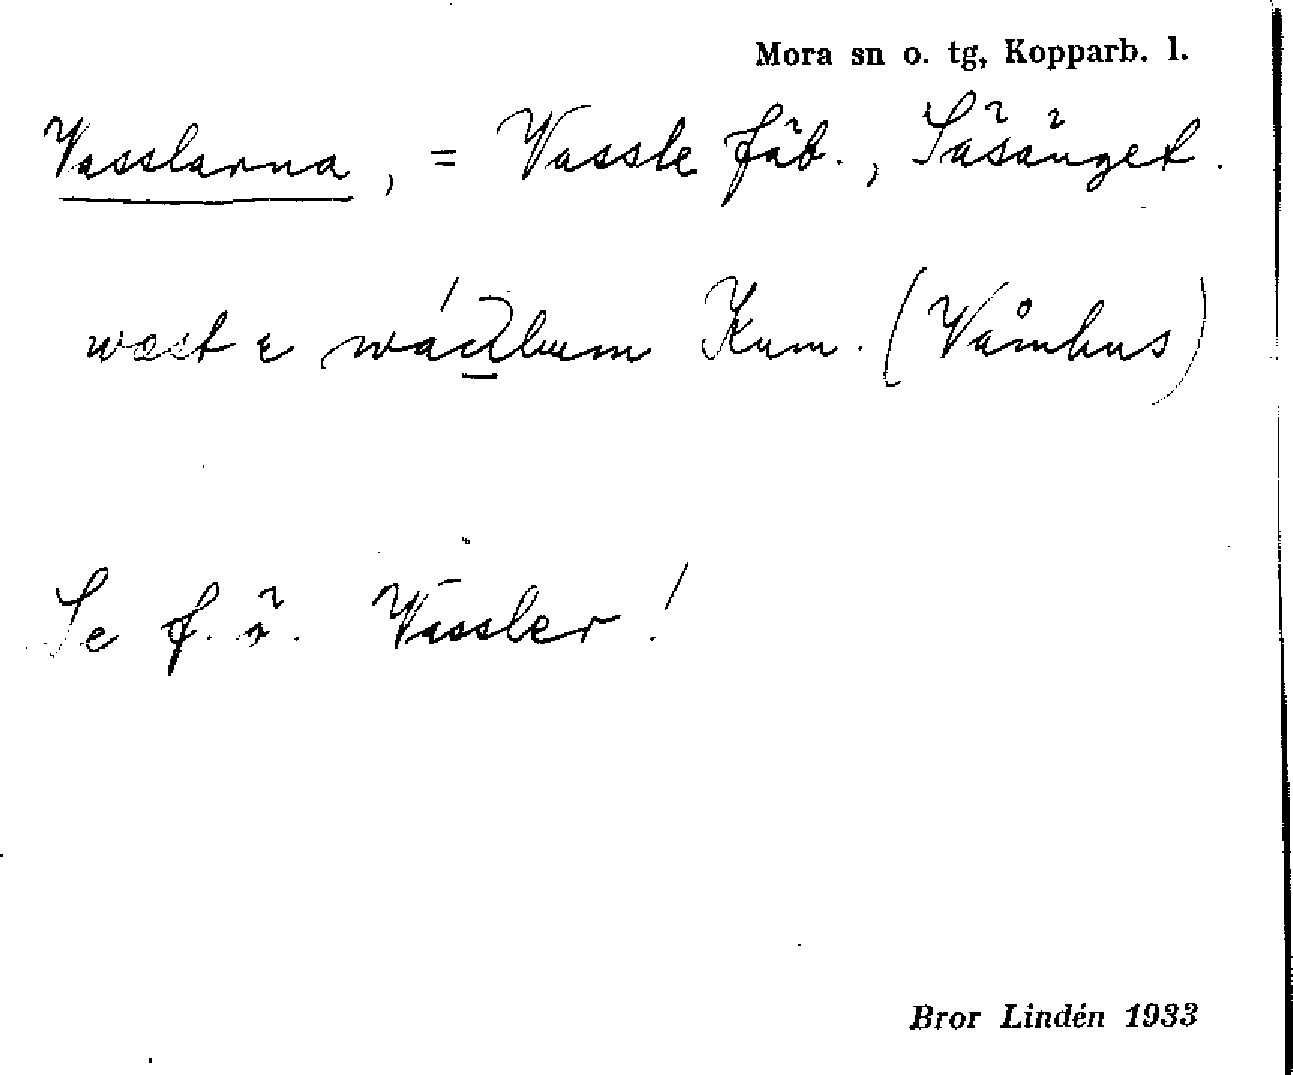 Mora sn o. tg, Kopparb. l.
Vasslarna, = Vassle fäb., Säsänget.
wæst ε Kum. (Våmhus)
Se f. ö. Vassler!
Bror Lindén 1933